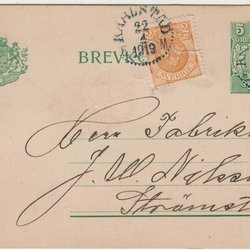 BREVK
KARLSTAD
22
1
1919
2 2
SVERIGE
5
ÖRE
Herr Fabrik
J. W. Nilss
Strömst